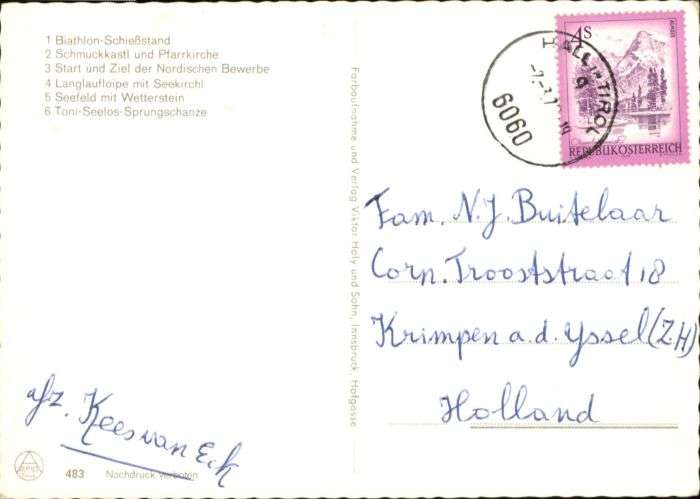 1 Biathlon-Schießstand
2 Schmuckkastl und Pfarrkirche
3 Start und Ziel der Nordischen Bewerbe
4 Langlaufloipe mit Seekirchl
5 Seefeld mit Wetterstein
6 Toni-Seelos-Sprungschanze
Farbaufnahme und Verlag Viktor Holy und Sohn, Innsbruck, Hofgasse
4S
REPUBLIK ÖSTERREICH
HALL in TIROL
6060
Fam. N.J. Buitelaar
Corn. Trooststraat 18
Krimpen a.d. Yssel (Z.H)
Holland
afz. Kees van Eck
483 Nachdruck verboten